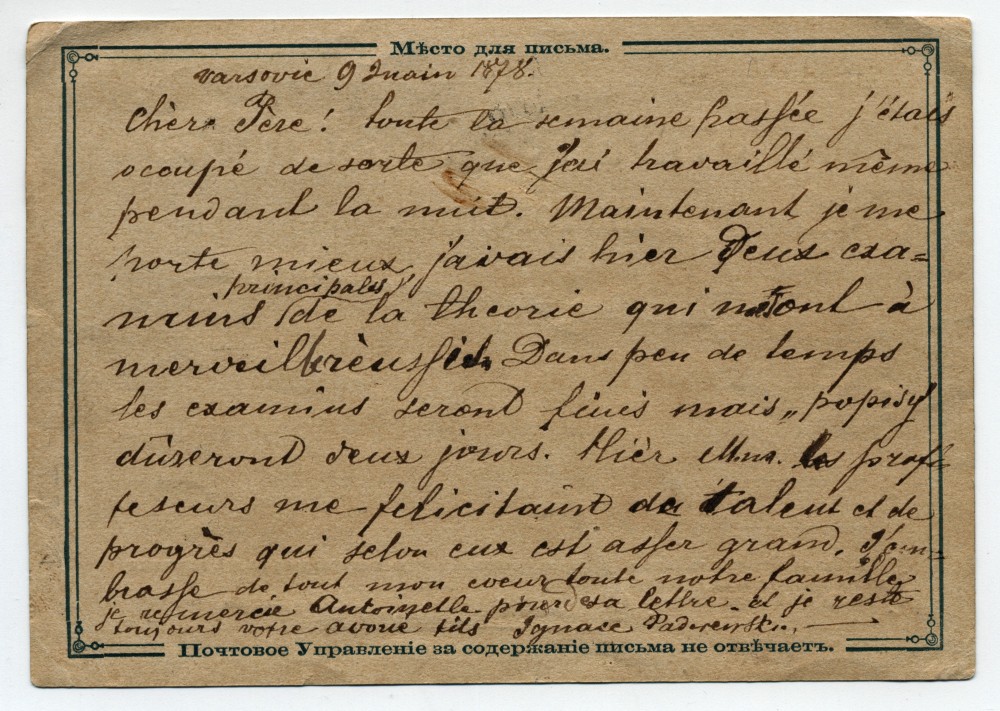 Мѣсто для письма.
Varsovie 9 Juain 1878.
Chèr Père! toute la semaine passée j'étais
ocoupé de sorte que j'ai travaillé même
pendant la nuit. Maintenant je me
porte mieux, j'avais hier deux exa=
principales
mins de la théorie qui m'ont à
merveill rèussit. Dans peu de temps
les examins seront finis mais „popisy"
dûreront deux jours. Hièr M.m. les prof-
fesseurs me felicitaint de talent et de
progrès qui selon eux est asser grand. J'em-
brasse de tout mon coeur toute notre famille
je remercie Antoinette pour sa lettre et je reste
toujours votre avoué fils Ignace Paderewski.
Почтовое Управленіе за содержаніе письма не отвѣчаетъ.